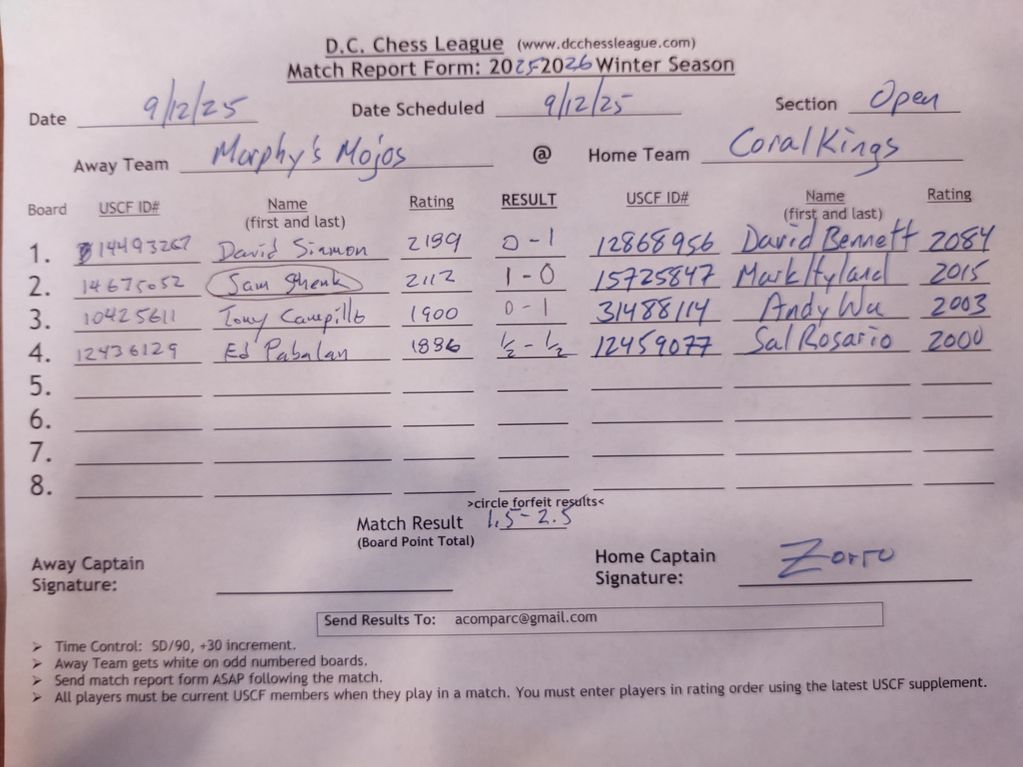 D.C. Chess League (www.dcchessleague.com)
Match Report Form: 2025-2026 Winter Season
Date 9/12/25 Date Scheduled 9/12/25 Section Open
Away Team Morphy's Mojos @ Home Team Coral Kings
Board USCF ID# Name (first and last) Rating RESULT USCF ID# Name (first and last) Rating
1. 14493267 David Sinmon 2199 0-1 12868956 David Bennett 2084
2. 14675052 Sam Shenk 2112 1-0 15725847 Mark Hyland 2015
3. 10425611 Tony Campillo 1900 0-1 31488114 Andy Wu 2003
4. 12436129 Ed Pabalan 1886 ½-½ 12459077 Sal Rosario 2000
5.
6.
7.
8.
>circle forfeit results<
Match Result 1.5-2.5
(Board Point Total)
Away Captain Signature: Home Captain Signature: Zorro
Send Results To: acomparc@gmail.com
➢ Time Control: SD/90, +30 increment.
➢ Away Team gets white on odd numbered boards.
➢ Send match report form ASAP following the match.
➢ All players must be current USCF members when they play in a match. You must enter players in rating order using the latest USCF supplement.